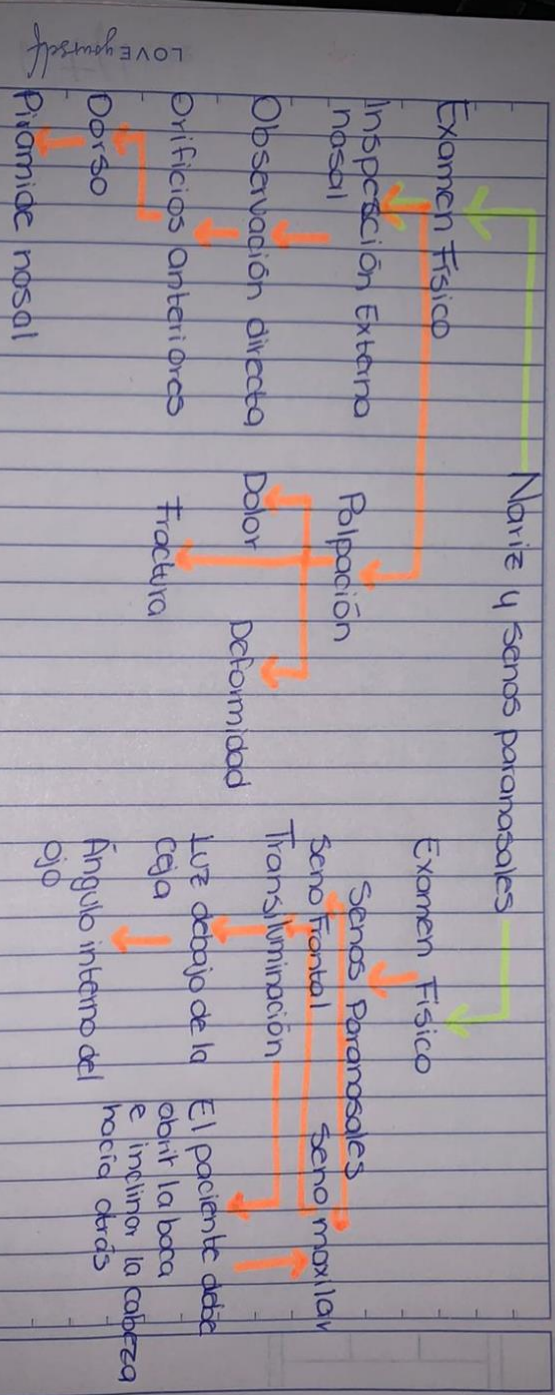 LOVE yourself
Nariz y senos paranasales
Examen Físico
Inspección Externa
nasal
Observación directa
Orificios anteriores
Dorso
Pirámide nasal
Palpación
Dolor
Deformidad
Fractura
Examen Físico
Senos Paranasales
Seno Frontal
Seno maxilar
Transiluminación
Luz debajo de la
ceja
Ángulo interno del
ojo
El paciente debe
abrir la boca
e inclinar la cabeza
hacia atrás